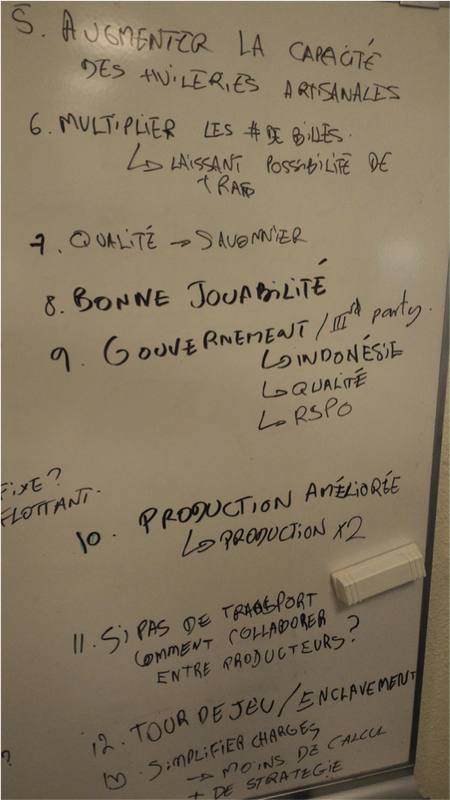 5. AUGMENTER LA CAPACITÉ
DES HUILERIES ARTISANALES
6. MULTIPLIER LES # DE BILLES.
↳ LAISSANT POSSIBILITÉ DE
+ RAFF
7. QUALITÉ → SAVONNIER
8. BONNE JOUABILITÉ
9. GOUVERNEMENT / IIIrd party.
↳ INDONÉSIE
↳ QUALITÉ
↳ RSPO
FIXE?
FLOTTANT.
10. PRODUCTION AMÉLIORÉE
↳ PRODUCTION X2
11. SI PAS DE TRANSPORT
COMMENT COLLABORER
ENTRE PRODUCTEURS?
12. TOUR DE JEU / ENCLAVEMENT
?
13. SIMPLIFIER CHARGES
→ MOINS DE CALCUL
+ DE STRATEGIE